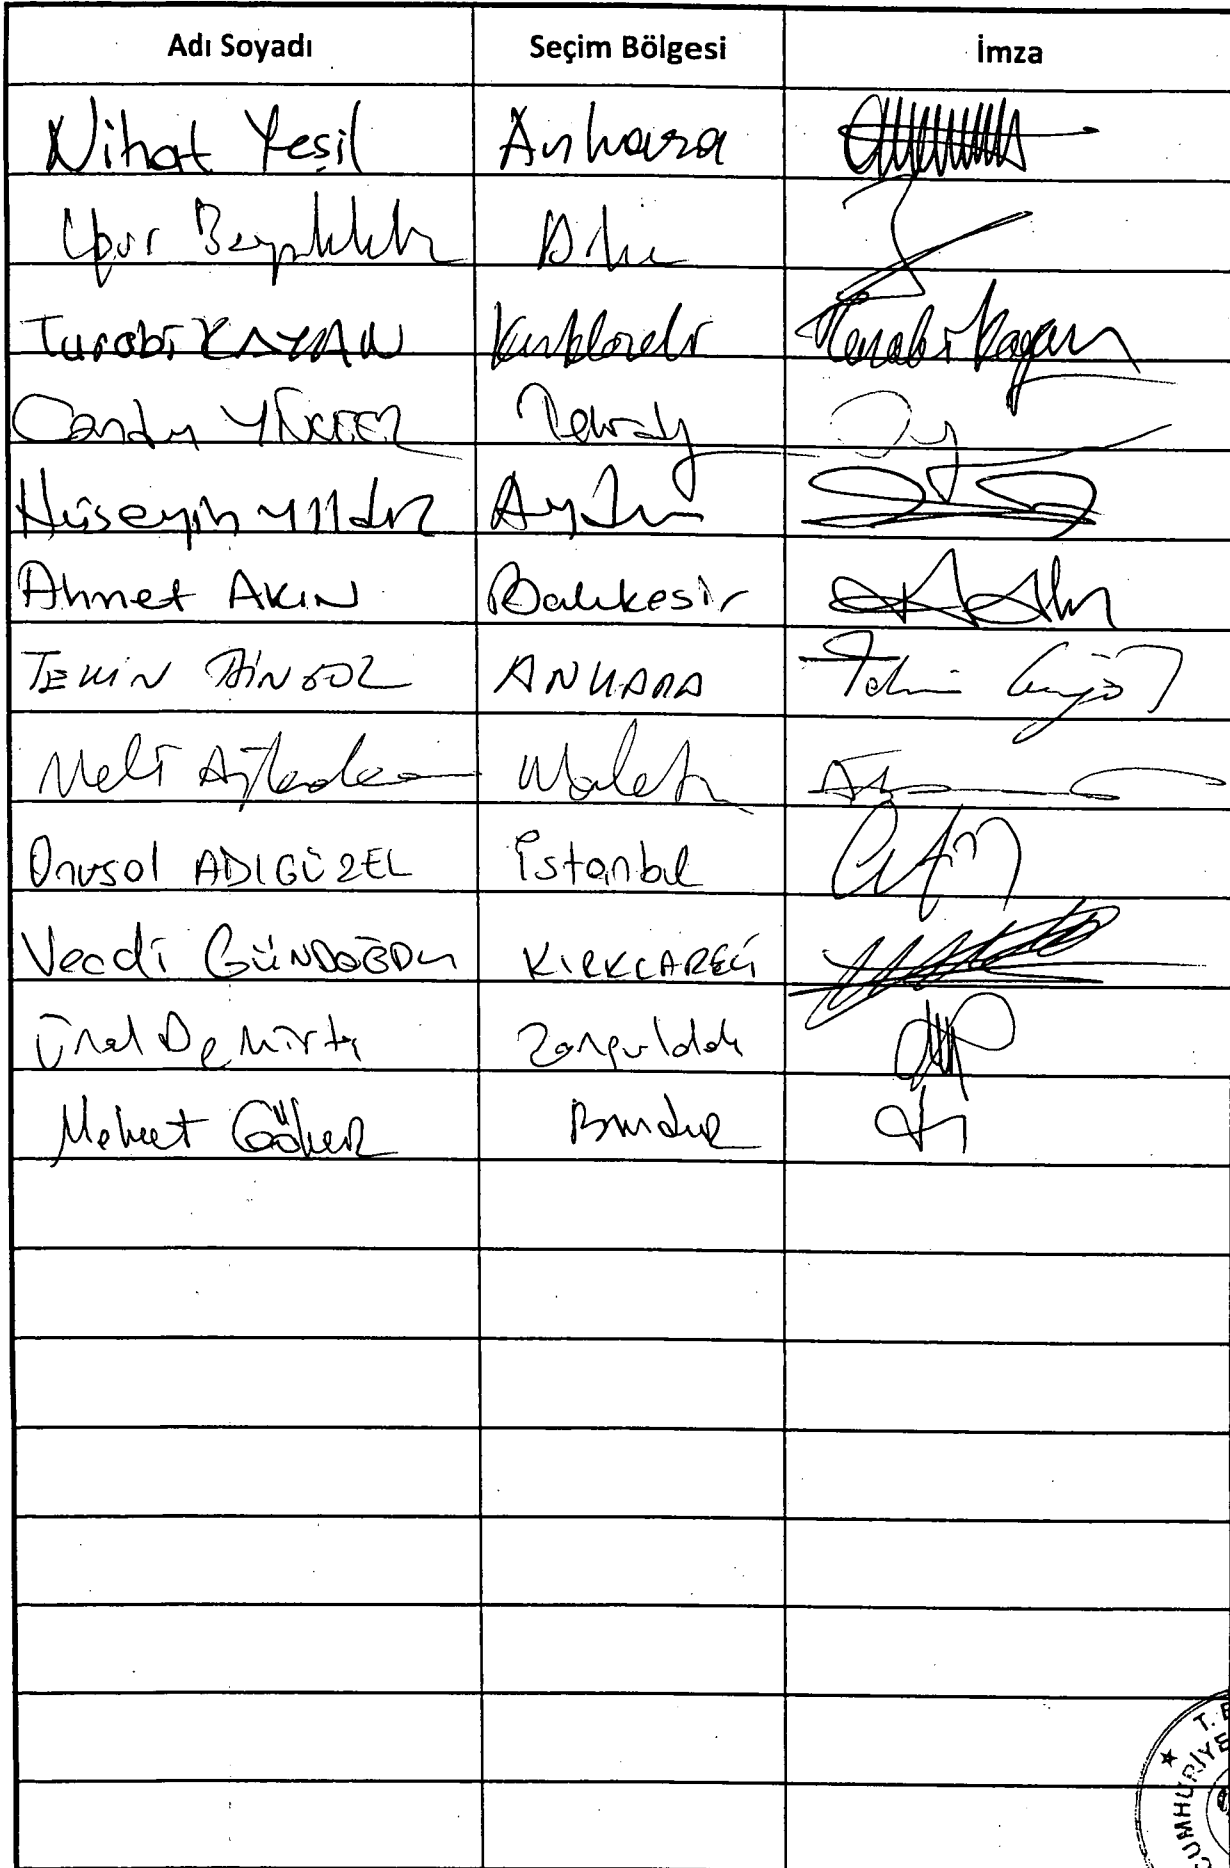 Adı Soyadı Seçim Bölgesi İmza
Nihat Yeşil Ankara
Uğur Bayraktutan
Turabi KAYAN Kırklareli Turabi Kayan
Candan YÜCEER Tekirdağ
Hüseyin YILDIZ Aydın
Ahmet AKIN Balıkesir
TEKİN BİNGÖL ANKARA Tekin Bingöl
Veli Ağbaba Malatya
Onursal ADIGÜZEL İstanbul
Vecdi GÜNDOĞDU KIRKLARELİ
Ünal Demirtaş Zonguldak
Mehmet Göker Burdur
CUMHURİYE